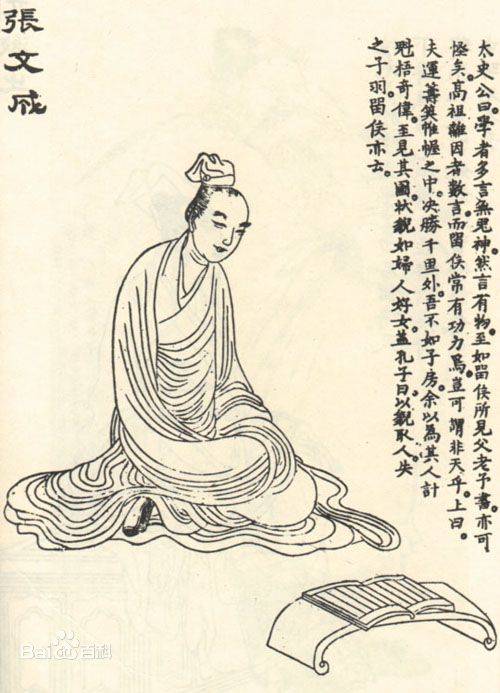 張文成
太史公曰。學者多言無鬼神。然言有物。至如留侯所見父老予書。亦可
怪矣。高祖離因者數言。而留侯常有功力焉。豈可謂非天乎。上曰。
夫運籌筴帷幄之中。決勝千里外。吾不如子房。余以為其人計
魁梧奇偉。至見其圖。狀貌如婦人好女。蓋孔子曰。以貌取人。失
之子羽。留侯亦云。
Bai百科